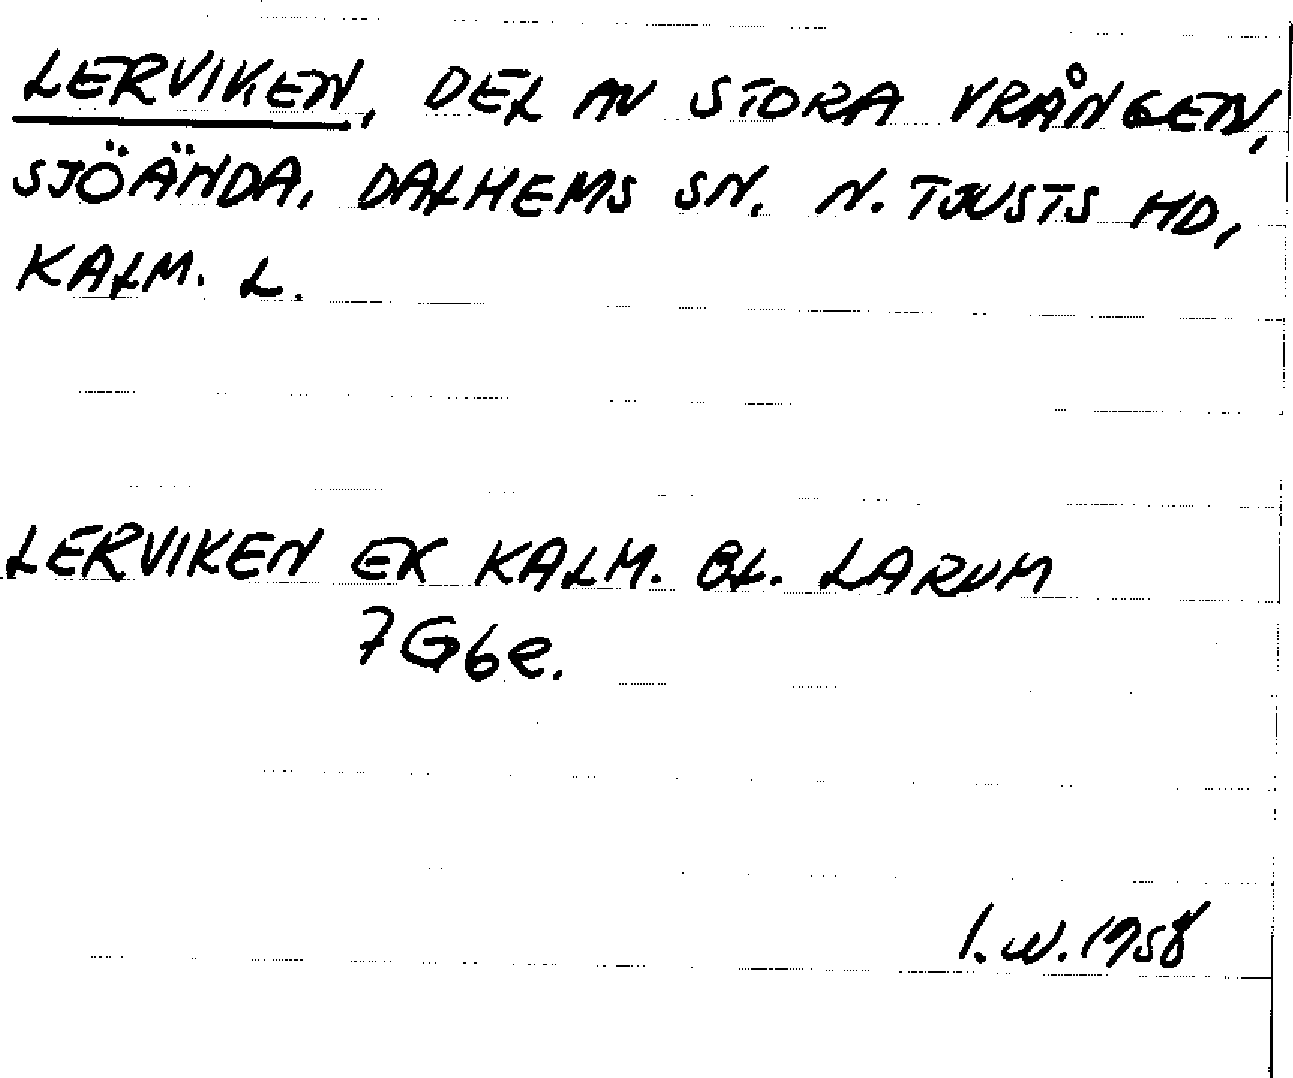 LERVIKEN, DEL AV STORA VRÅNGEN,
SJÖÄNDA, DALHEMS SN. N. TJUSTS HD,
KALM. L.
LERVIKEN EK KALM. BL. LARUM
7G6e.
I.W. 1958